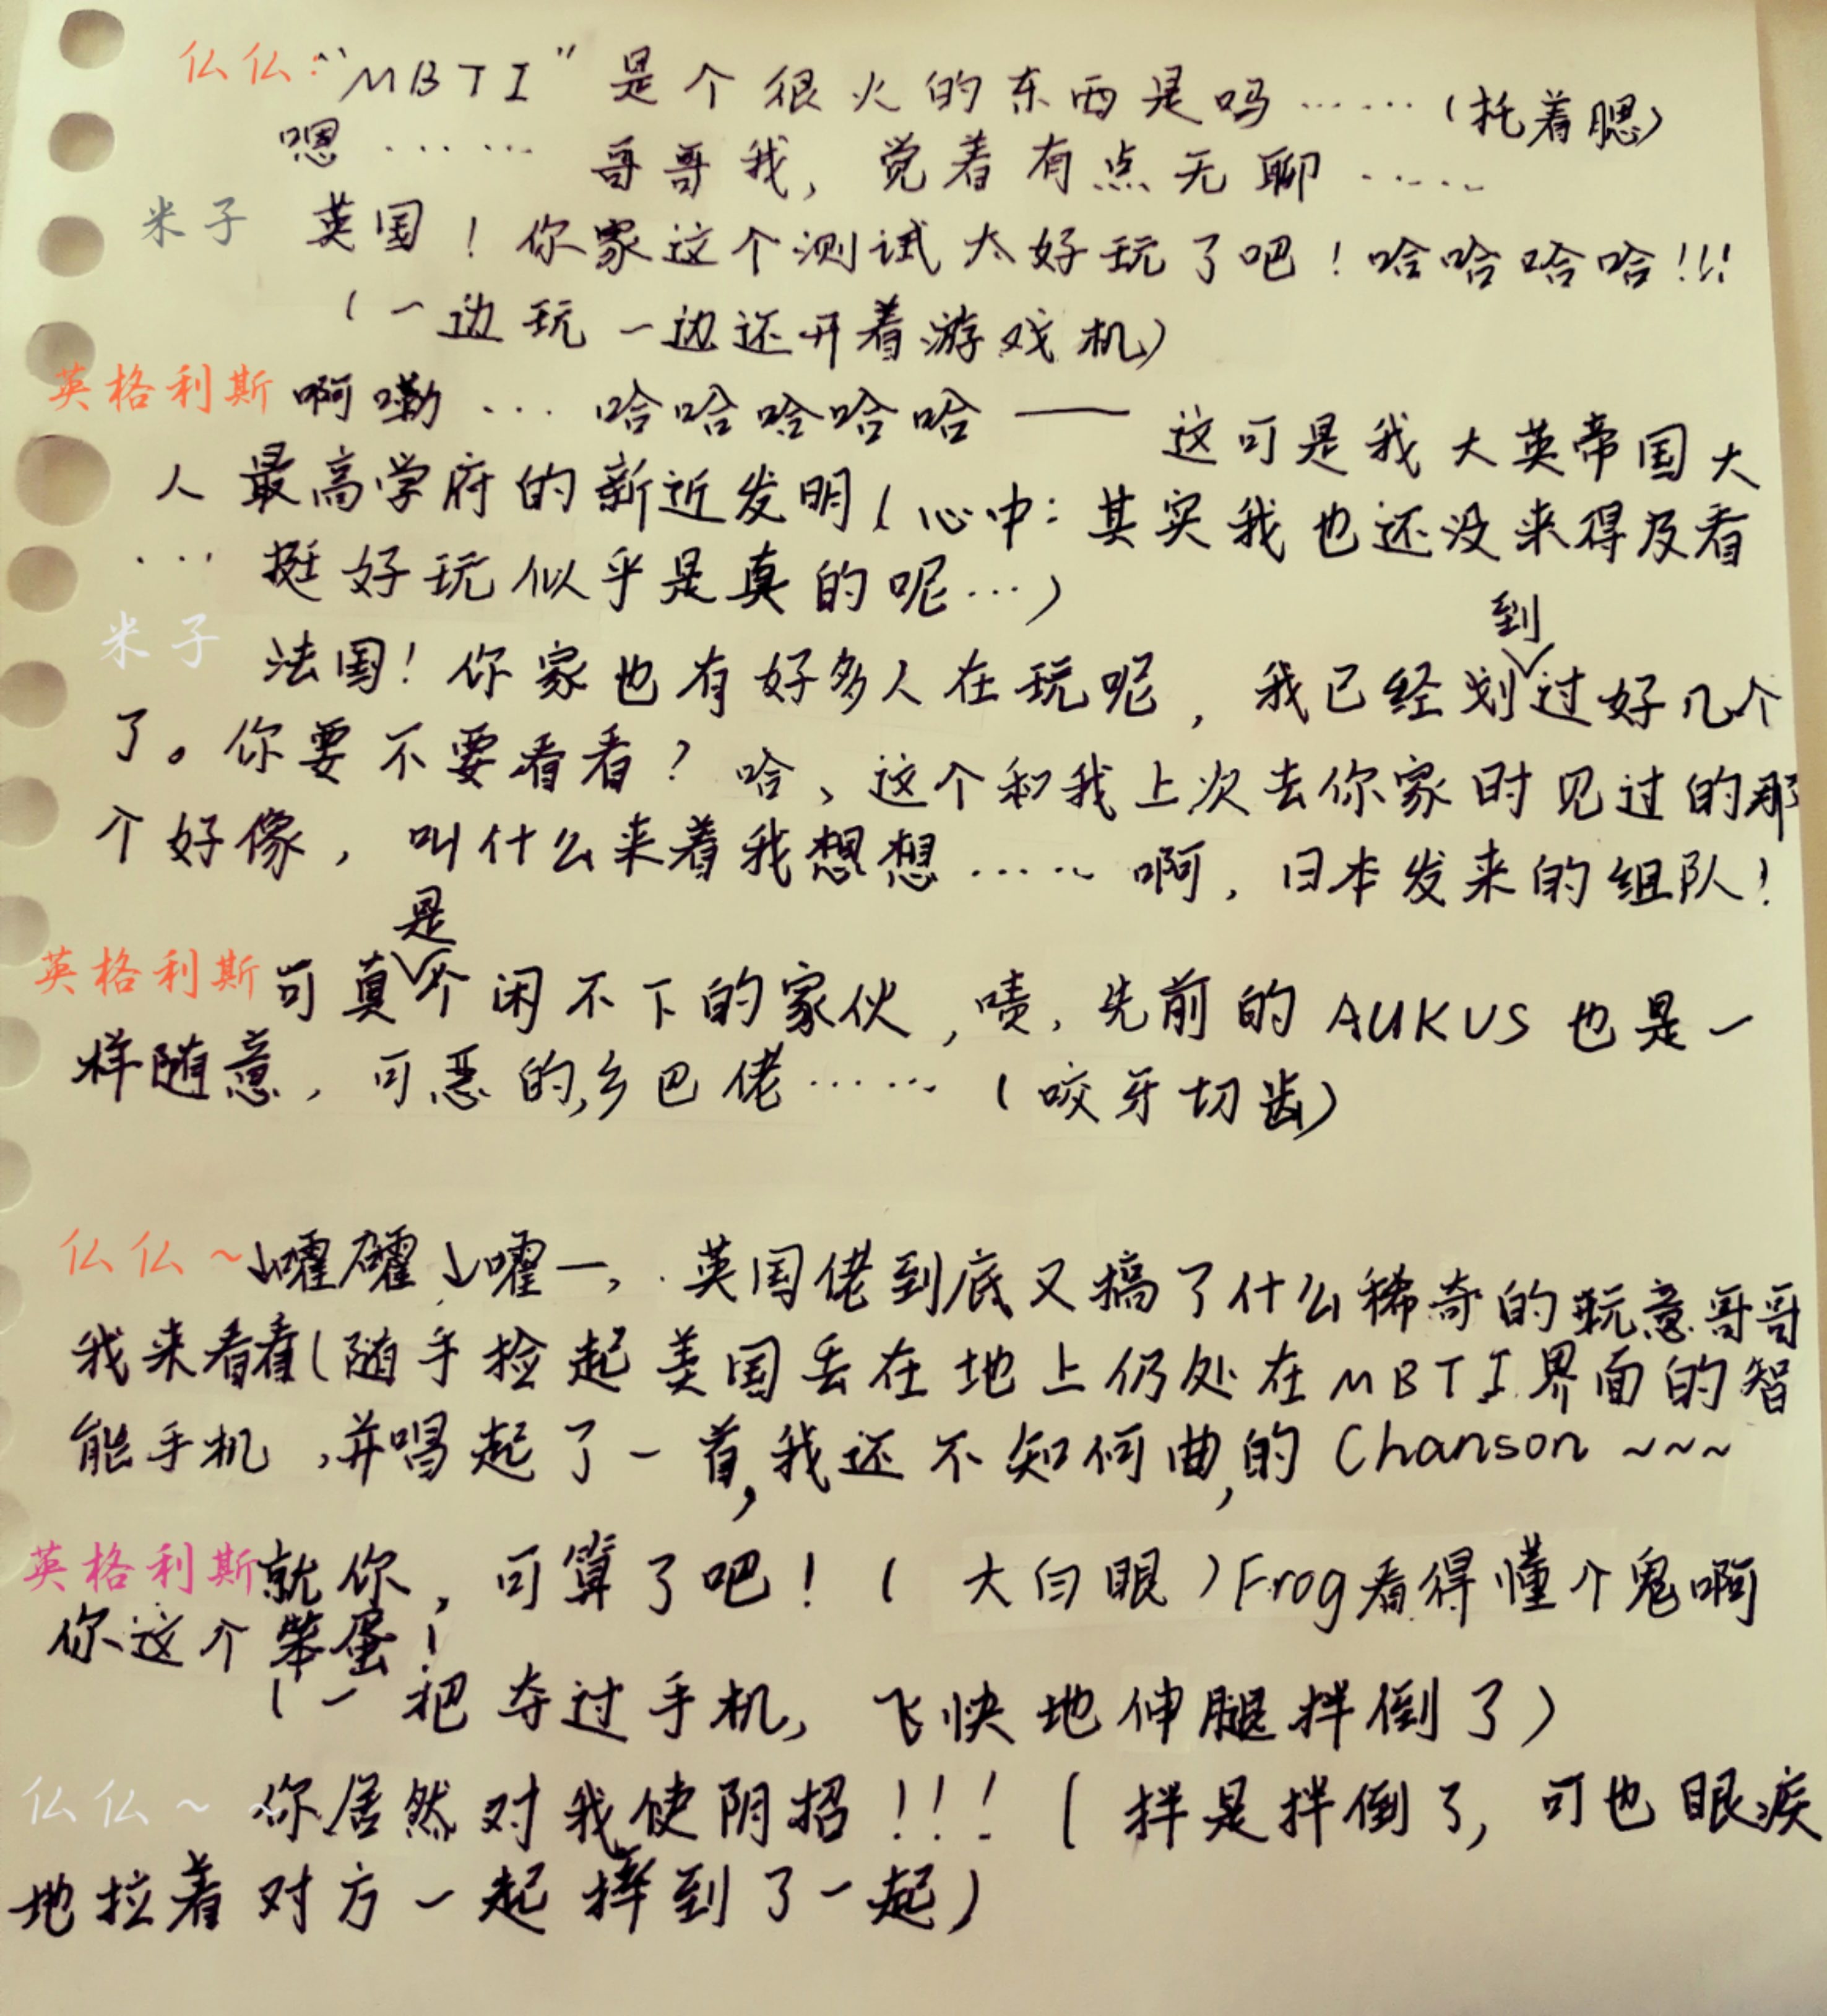 仏仏:“MBTI”是个很火的东西是吗……(托着腮)
嗯……哥哥我,觉着有点无聊……
米子 英国!你家这个测试太好玩了吧!哈哈哈哈!!!
(一边玩一边还开着游戏机)
英格利斯 啊嘞…哈哈哈哈哈——这可是我大英帝国大
人最高学府的新近发明(心中:其实我也还没来得及看
…挺好玩似乎是真的呢…)
米子 法国!你家也有好多人在玩呢,我已经划到过好几个
了。你要不要看看?哈、这个和我上次去你家时见过的那
个好像,叫什么来着我想想……啊,日本发来的组队!
英格利斯 可真是个闲不下的家伙,啧,先前的AUKUS也是一
样随意,可恶的乡巴佬……(咬牙切齿)
仏仏~嚯嚯嚯一,英国佬到底又搞了什么稀奇的玩意哥哥
我来看看(随手捡起美国丢在地上仍处在MBTI界面的智
能手机,并唱起了一首,我还不知何曲,的Chanson~~~
英格利斯 就你,可算了吧!(大白眼)Frog看得懂个鬼啊
你这个笨蛋!
(一把夺过手机,飞快地伸腿拌倒了)
仏仏~~你居然对我使阴招!!!(拌是拌倒了,可也眼疾
地拉着对方一起摔到了一起)